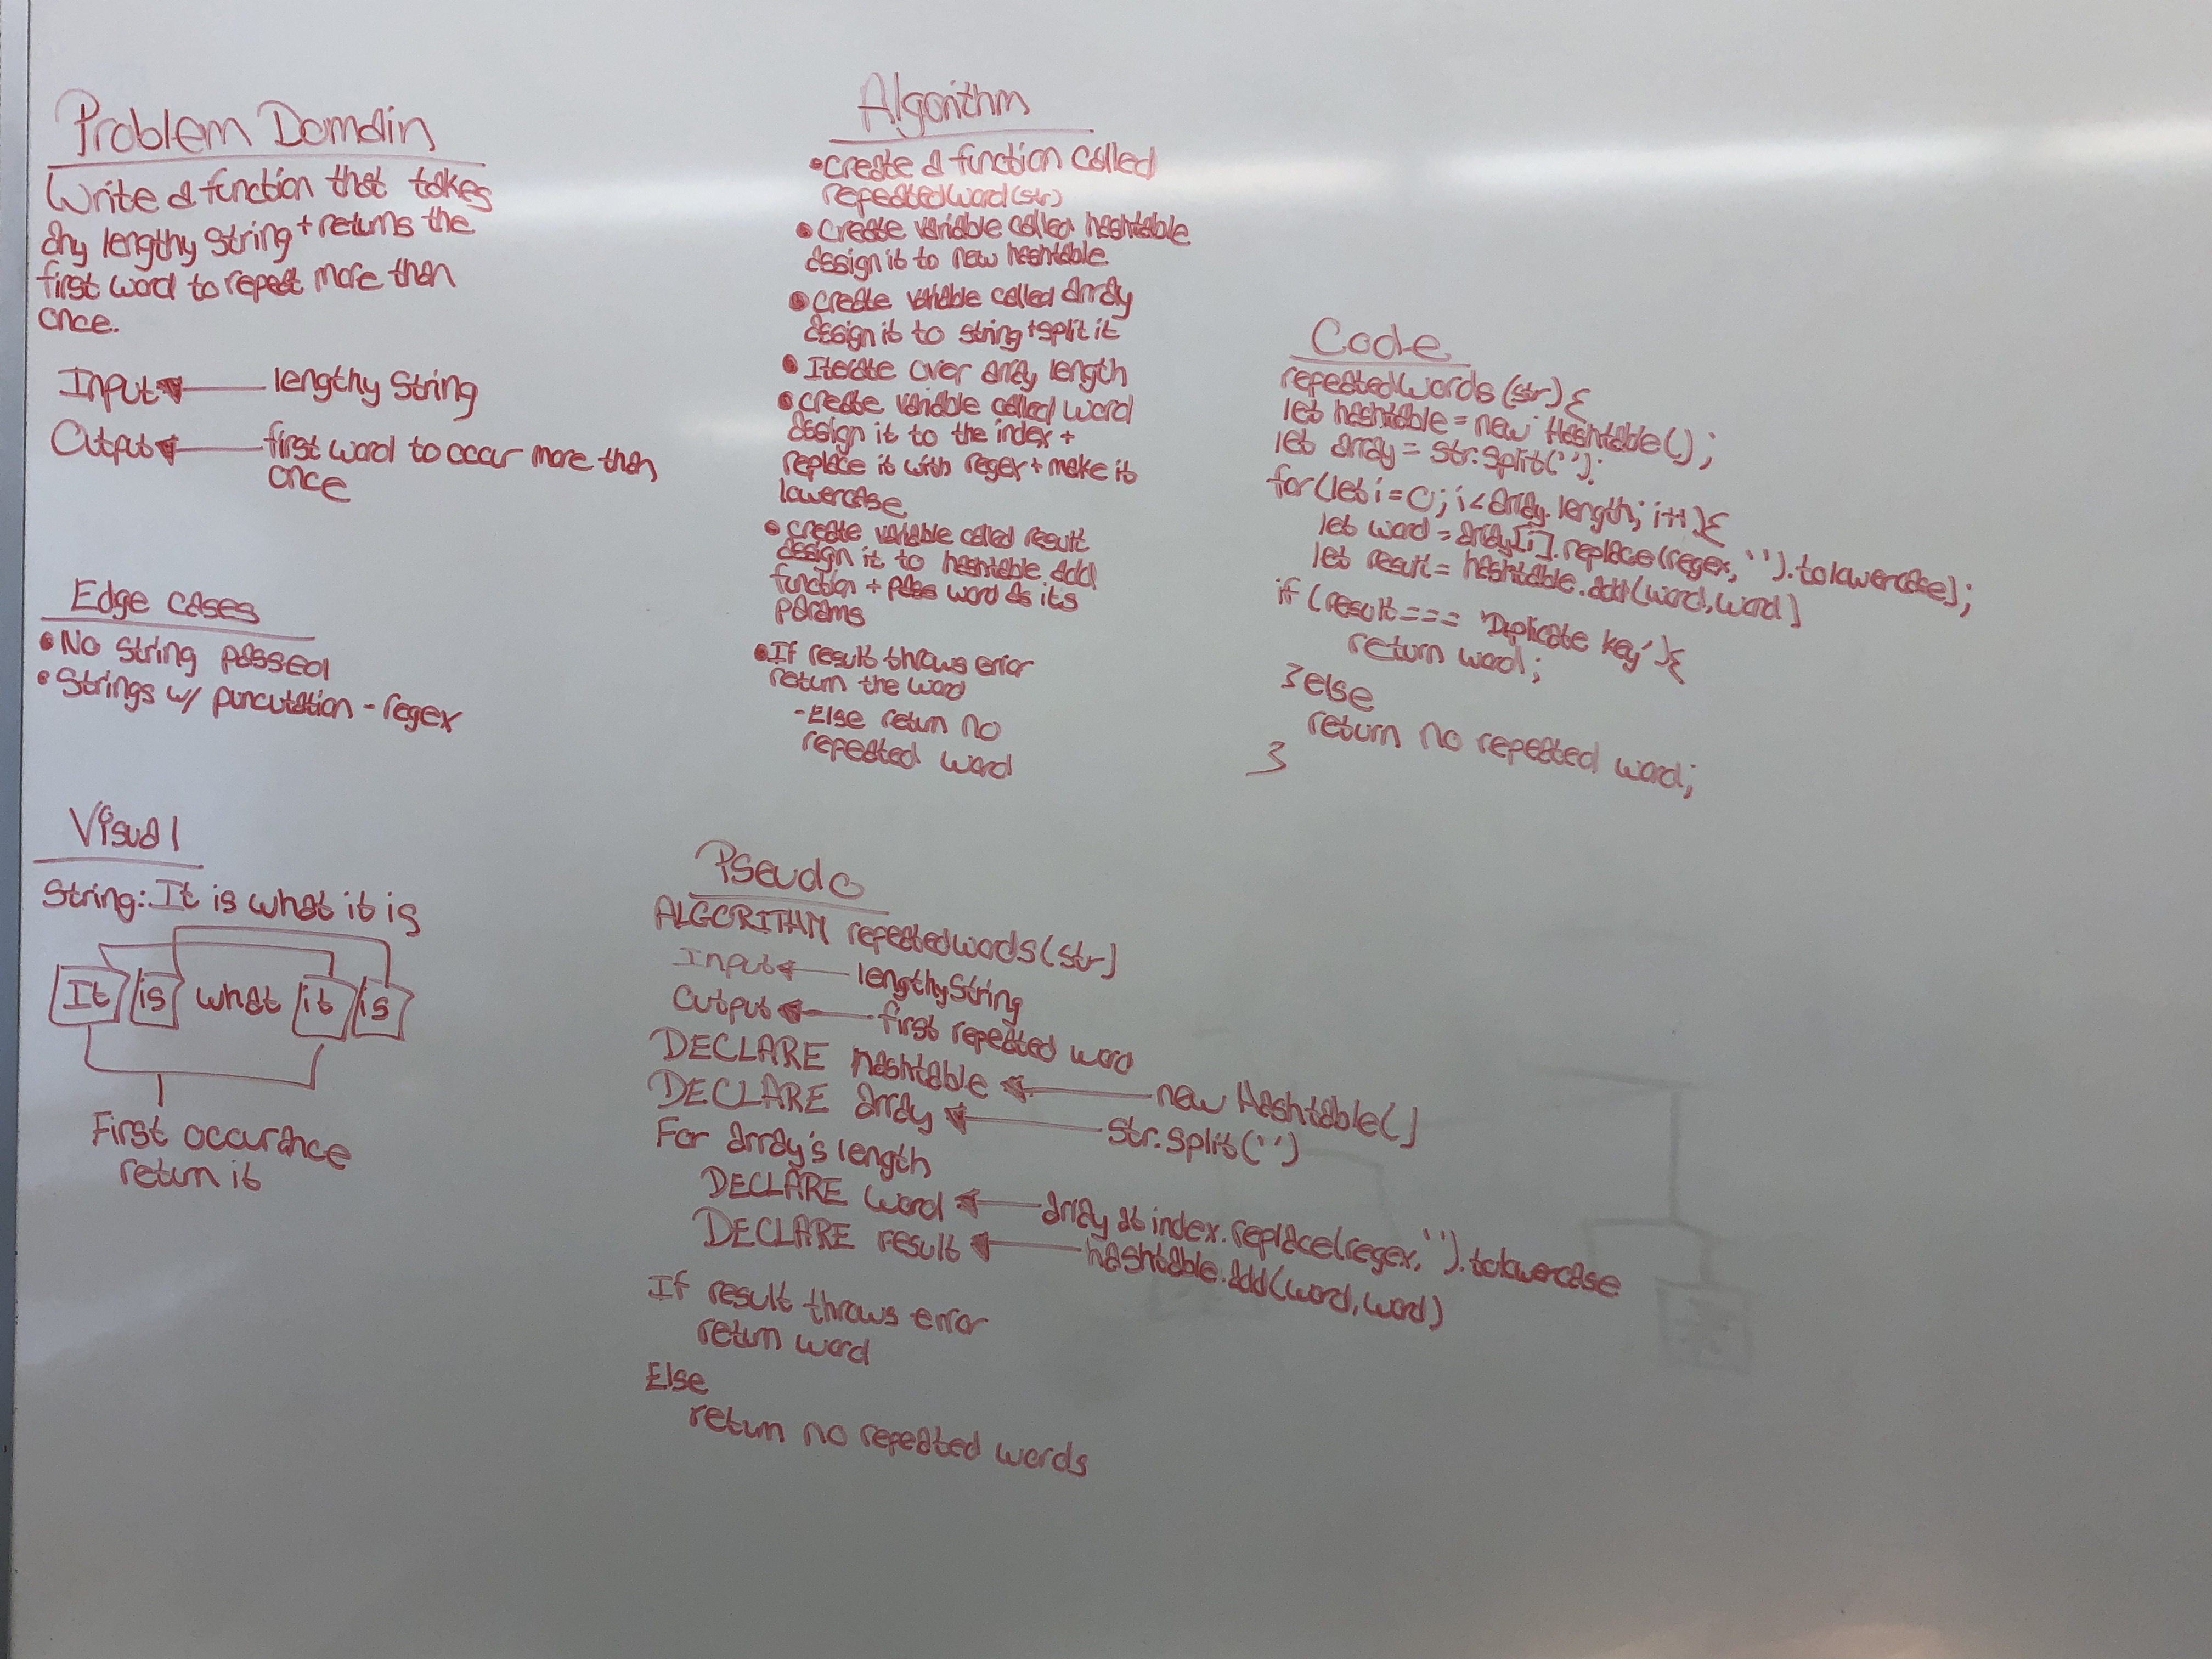 Problem Domain
Write a function that takes
any lengthy string + returns the
first word to repeat more than
once.
Input ← lengthy String
Output ← first word to occur more than
once
Edge cases
• No string passed
• Strings w/ puncutation - regex
Visual
String: It is what it is
It is what it is
First occurance
return it
Algorithm
• Create a function called
repeatedWord(str)
• Create variable called hashtable
assign it to new hashtable
• Create variable called array
assign it to string + split it
• Iterate over array length
• Create variable called word
assign it to the index +
replace it with regex + make it
lowercase
• Create variable called result
assign it to hashtable add
function + pass word as its
params
• If result throws error
return the word
- Else return no
repeated word
Code
repeatedWords (str) {
let hashtable = new Hashtable();
let array = str.split(' ');
for (let i = 0; i < array.length; i++) {
let word = array[i].replace(regex, '').tolowercase);
let result = hashtable.add(word, word)
if (result === 'Duplicate key') {
return word;
} else
return no repeated word;
}
Pseudo
ALGORITHM repeatedwords(str)
Input ← lengthy String
Output ← first repeated word
DECLARE hashtable ← new Hashtable()
DECLARE array ← str.split(' ')
For array's length
DECLARE word ← array at index.replace(regex, '').tolowercase
DECLARE result ← hashtable.add(word, word)
If result throws error
return word
Else
return no repeated words